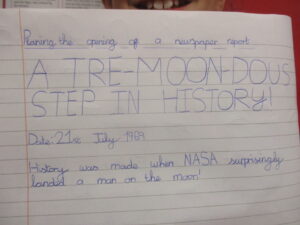 Planing the opening of a newspaper report
A TRE-MOON-DOUS
STEP IN HISTORY!
Date: 21st July 1969
History was made when NASA surprisingly
landed a man on the moon!